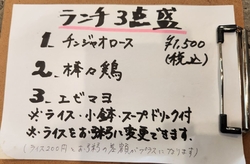 ランチ3点盛
1. チンジャオロース ¥1,500
(税込)
2. 棒々鶏
3. エビマヨ
※ライス・小鉢・スープドリンク付
※ライスをお弁当に変更できます。
(ライス200円